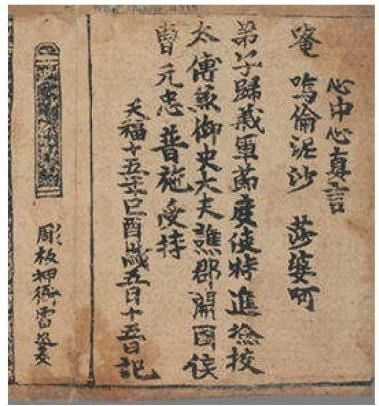 心中心真言
唵 嗚倫泥沙 莎婆呵
弟子歸義軍節度使特進撿挍
太傅兼御史大夫譙郡開國侯
曹元忠普施受持
天福十五年己酉歲五月十五日記
彫板押衙雷延美